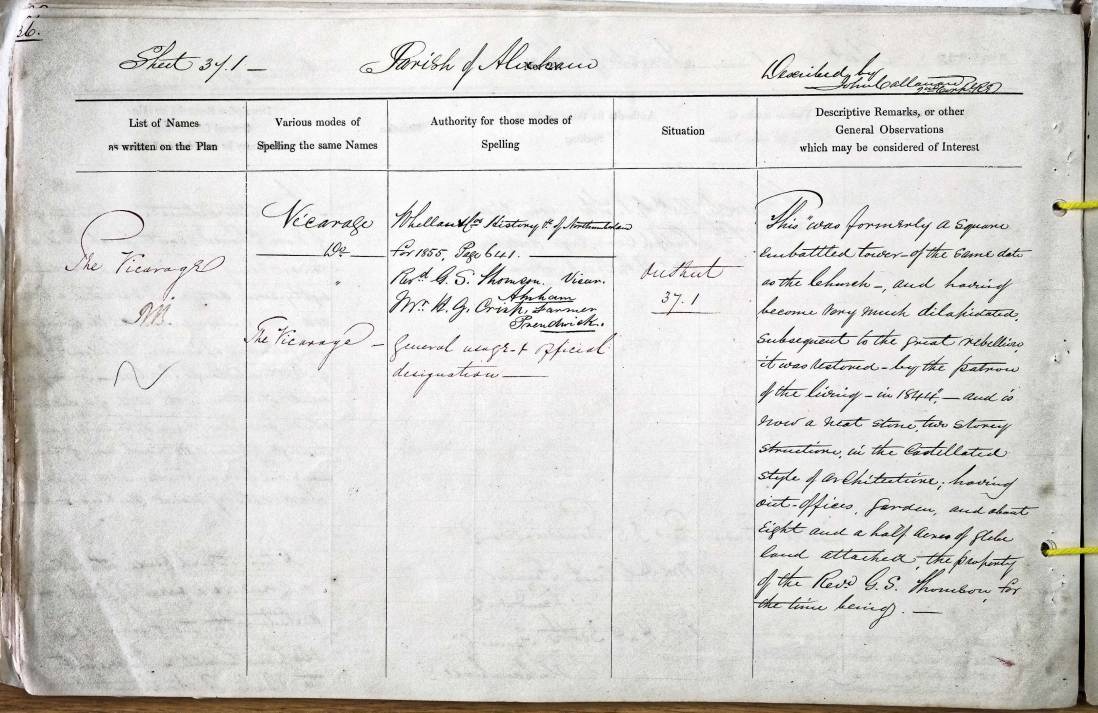 36.
Sheet 37.1 — Parish of Alnham Described by
John Callanan
List of Names
as written on the Plan
Various modes of
Spelling the same Names
Authority for those modes of
Spelling
Situation
Descriptive Remarks, or other
General Observations
which may be considered of Interest
The Vicarage
Vicarage
Do
"
The Vicarage —
Whellan & Cos History &c of Northumberland
for 1855, Page 641.
Revd. G. S. Thomson. Vicar.
Alnham
Mr. H. G. Crisp, Farmer
Prendwick.
General usage & official
designation —
On Sheet
37.1
This was formerly a square
embattled tower - of the same date
as the Church -, and having
become very much dilapidated,
subsequent to the great rebellion,
it was restored - by the patron
of the living - in 1844, — and is
now a neat stone, two storey
structure, in the Castellated
style of architecture; having
out-offices, Garden, and about
Eight and a half Acres of glebe
land attached, the property
of the Revd G. S. Thomson, for
the time being. —